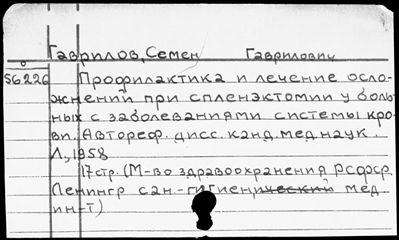 Гаврилов, Семен Гаврилович
56226 Профилактика и лечение осло-
жнений при спленэктомии у боль-
ных с заболеваниями системы кро-
ви. Автореф. дисс. канд. мед. наук.
Л., 1958
17 стр. (М-во здравоохранения РСФСР.
Ленингр сан.-гигиенический мед
ин-т)